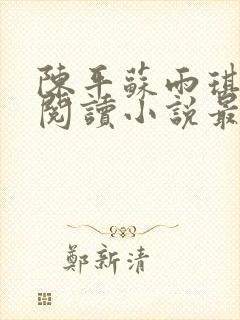 陳平蘇雨琪
閱讀小說最
鄭新清